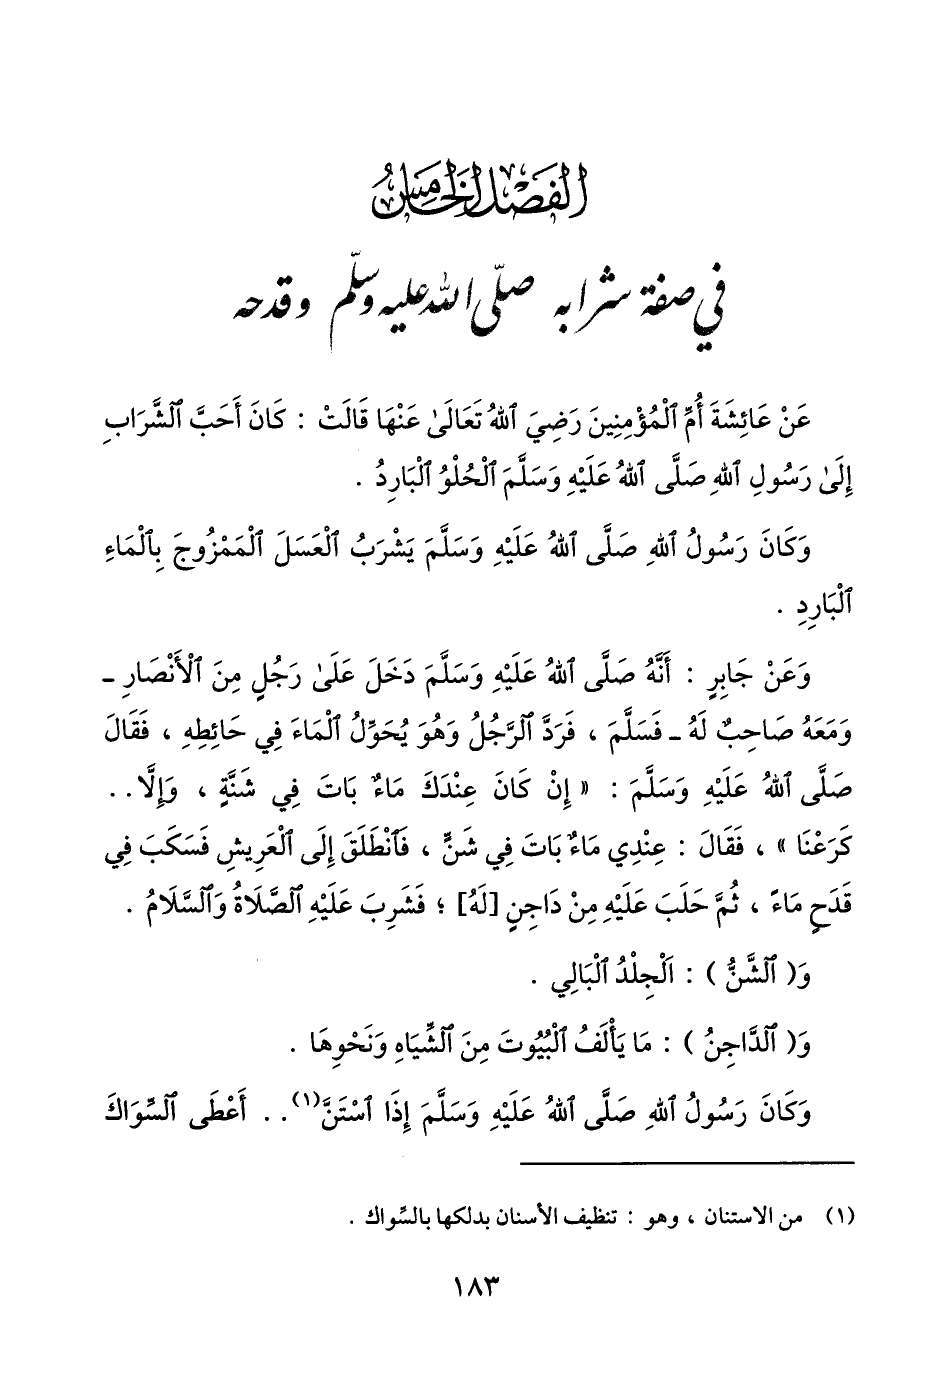 الفَصْل الخَامِسُ
في صفة شرابه صلّى الله عليه وسلّم وقدحه
عَنْ عَائِشَةَ أُمِّ ٱلْمُؤْمِنِينَ رَضِيَ ٱللهُ تَعَالَىٰ عَنْهَا قَالَتْ : كَانَ أَحَبَّ ٱلشَّرَابِ
إِلَىٰ رَسُولِ ٱللهِ صَلَّى ٱللهُ عَلَيْهِ وَسَلَّمَ ٱلْحُلْوُ ٱلْبَارِدُ .
وَكَانَ رَسُولُ ٱللهِ صَلَّى ٱللهُ عَلَيْهِ وَسَلَّمَ يَشْرَبُ ٱلْعَسَلَ ٱلْمَمْزُوجَ بِٱلْمَاءِ
ٱلْبَارِدِ .
وَعَنْ جَابِرٍ : أَنَّهُ صَلَّى ٱللهُ عَلَيْهِ وَسَلَّمَ دَخَلَ عَلَىٰ رَجُلٍ مِنَ ٱلْأَنْصَارِ ـ
وَمَعَهُ صَاحِبٌ لَهُ ـ فَسَلَّمَ ، فَرَدَّ ٱلرَّجُلُ وَهُوَ يُحَوِّلُ ٱلْمَاءَ فِي حَائِطِهِ ، فَقَالَ
صَلَّى ٱللهُ عَلَيْهِ وَسَلَّمَ : « إِنْ كَانَ عِنْدَكَ مَاءٌ بَاتَ فِي شَنَّةٍ ، وَإِلَّا . .
كَرَعْنَا » ، فَقَالَ : عِنْدِي مَاءٌ بَاتَ فِي شَنٍّ ، فَٱنْطَلَقَ إِلَى ٱلْعَرِيشِ فَسَكَبَ فِي
قَدَحٍ مَاءً ، ثُمَّ حَلَبَ عَلَيْهِ مِنْ دَاجِنٍ [لَهُ] ؛ فَشَرِبَ عَلَيْهِ ٱلصَّلَاةُ وَٱلسَّلَامُ .
وَ( ٱلشَّنُّ ) : ٱلْجِلْدُ ٱلْبَالِي .
وَ( ٱلدَّاجِنُ ) : مَا يَأْلَفُ ٱلْبُيُوتَ مِنَ ٱلشِّيَاهِ وَنَحْوِهَا .
وَكَانَ رَسُولُ ٱللهِ صَلَّى ٱللهُ عَلَيْهِ وَسَلَّمَ إِذَا ٱسْتَنَّ(١) . . أَعْطَى ٱلسِّوَاكَ
(١) من الاستنان ، وهو : تنظيف الأسنان بدلكها بالسِّواك .
١٨٣